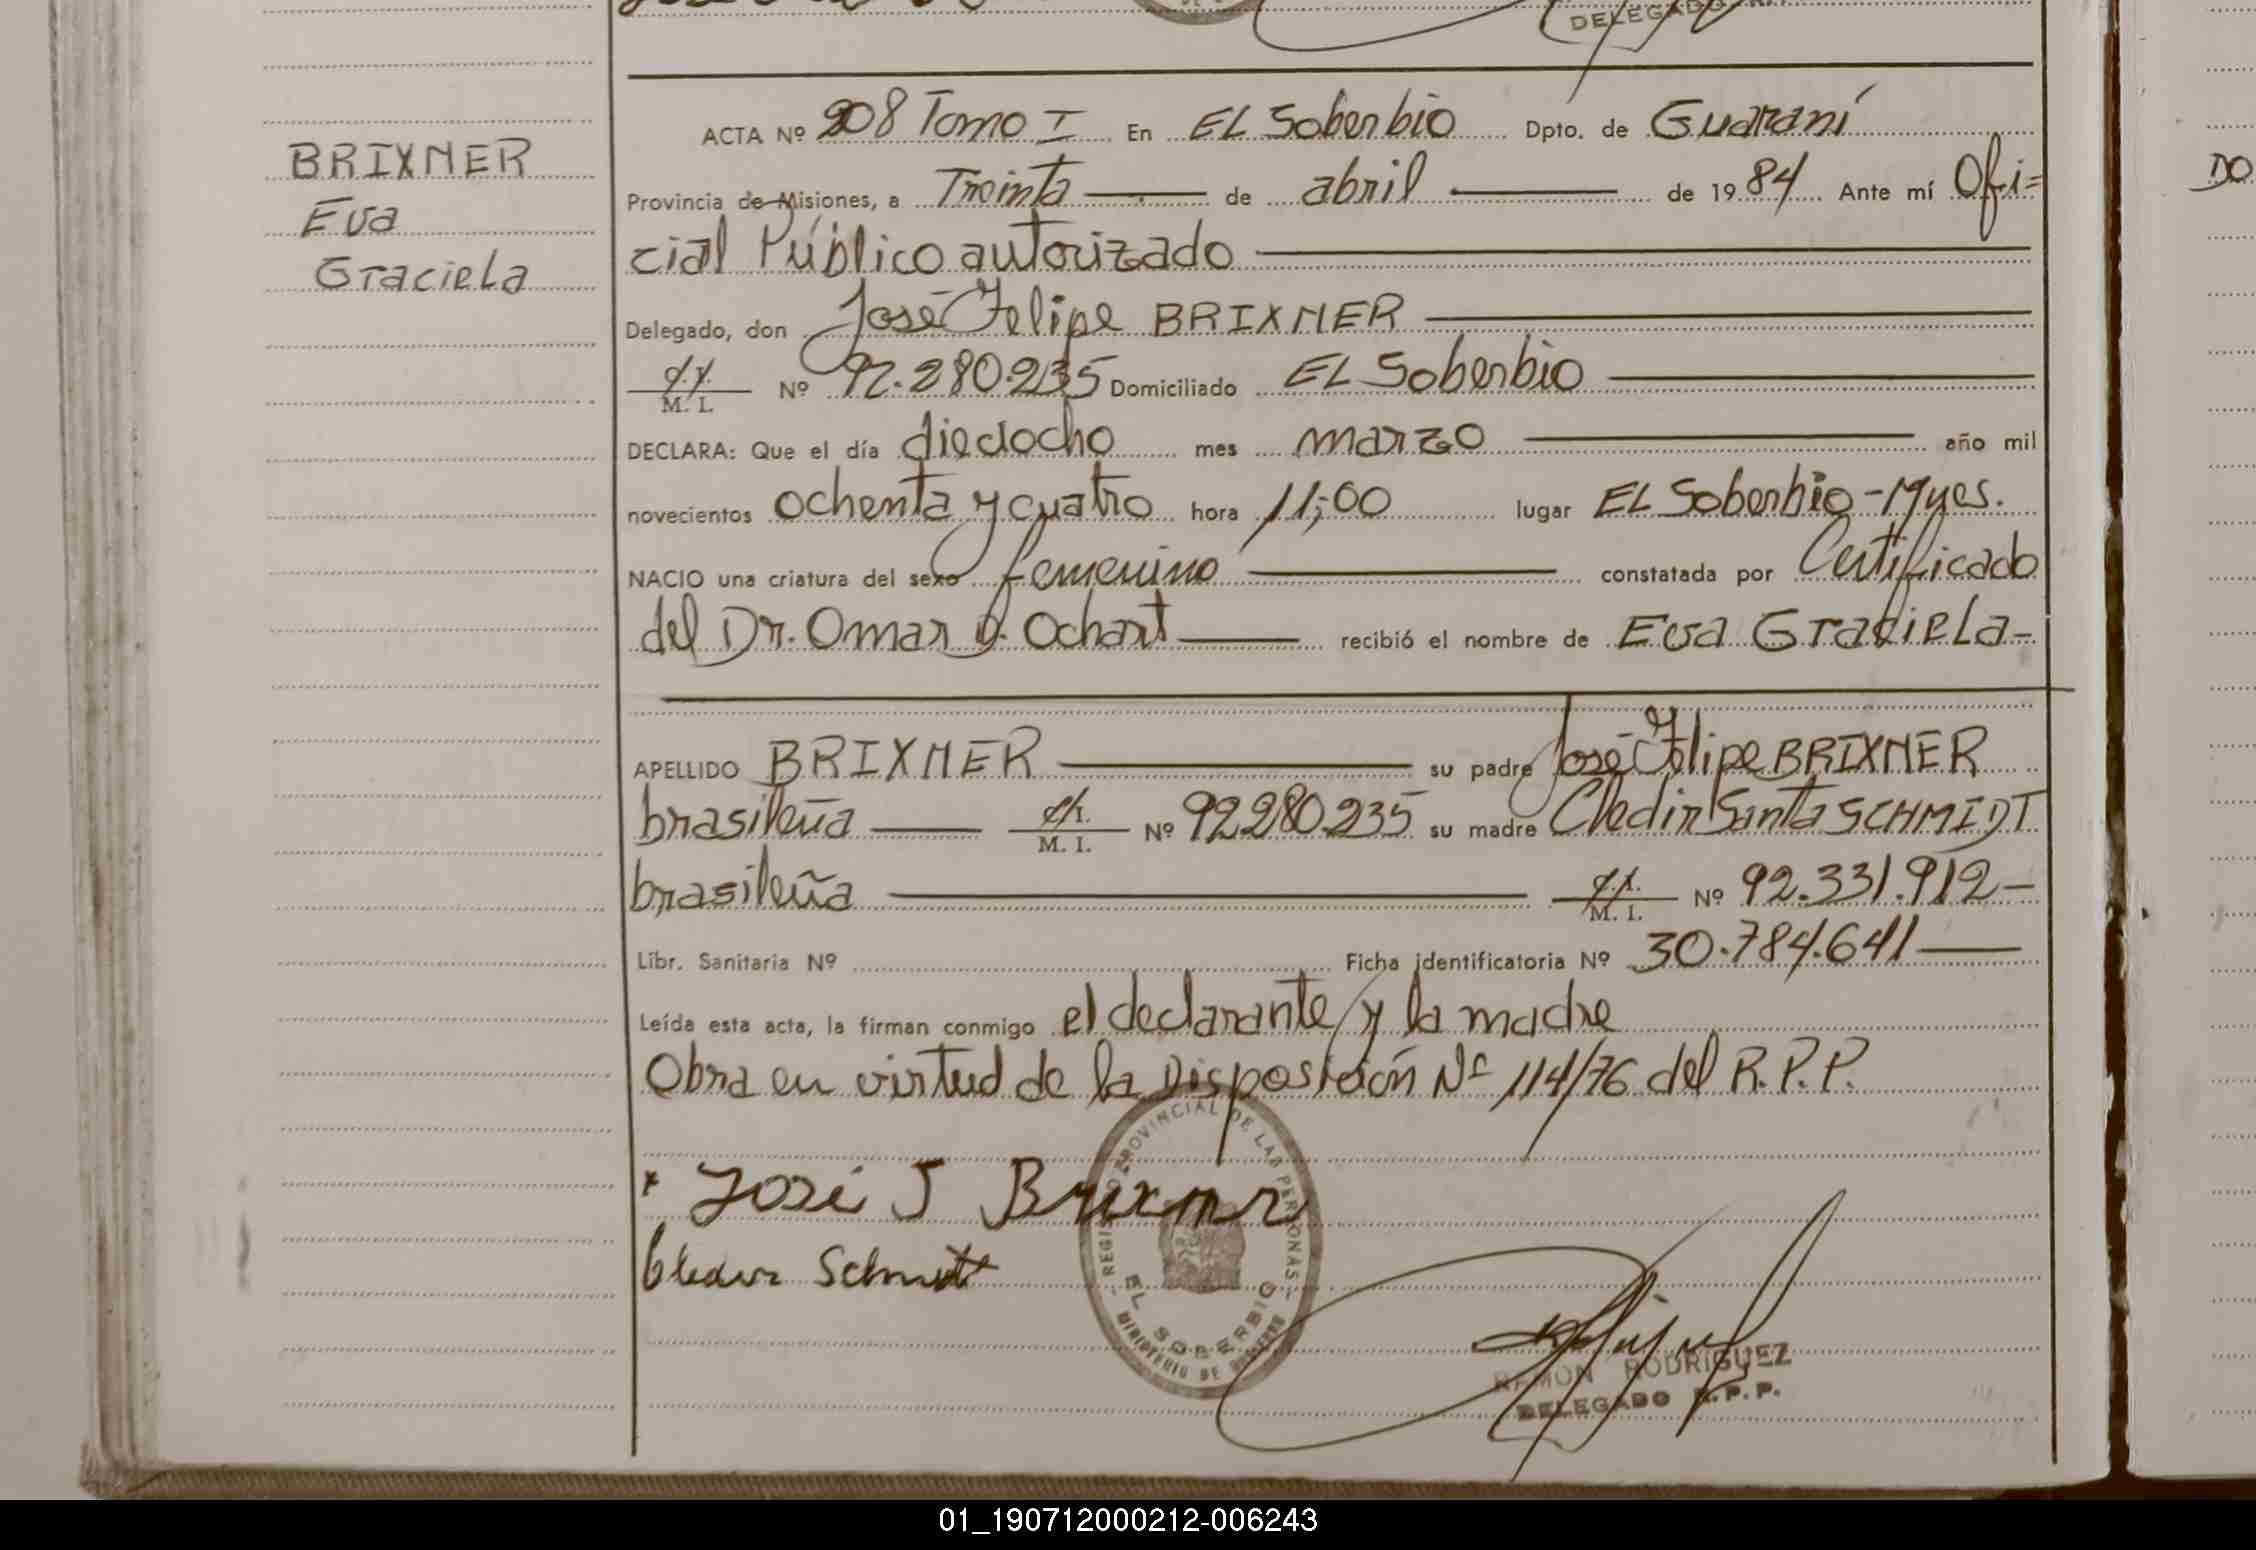 DELEGADO
BRIXNER
Eva
Graciela
ACTA Nº 208 Tomo I En EL Soberbio Dpto. de Guaraní
Provincia de Misiones, a Treinta de abril de 1984 Ante mí Ofi=
cial Público autorizado
Delegado, don José Felipe BRIXNER
M. I. Nº 92.280.235 Domiciliado EL Soberbio
DECLARA: Que el día dieciocho mes marzo año mil
novecientos ochenta y cuatro hora 11;00 lugar EL Soberbio - Mnes.
NACIO una criatura del sexo femenino constatada por Certificado
del Dr. Omar D. Ochart recibió el nombre de Eva Graciela-
APELLIDO BRIXNER su padre José Felipe BRIXNER
brasileña M. I. Nº 92.280.235 su madre Cledir Santa SCHMIDT
brasileña M. I. Nº 92.331.912-
Libr. Sanitaria Nº Ficha identificatoria Nº 30.784.641
Leída esta acta, la firman conmigo el declarante y la madre
Obra en virtud de la Disposición Nº 114/76 del R.P.P.
José F Brixner
Cledir Schmidt
REGISTRO PROVINCIAL DE LAS PERSONAS
EL SOBERBIO
MINISTERIO DE GOBIERNO
RAMON RODRIGUEZ
DELEGADO R.P.P.
DO
01_190712000212-006243